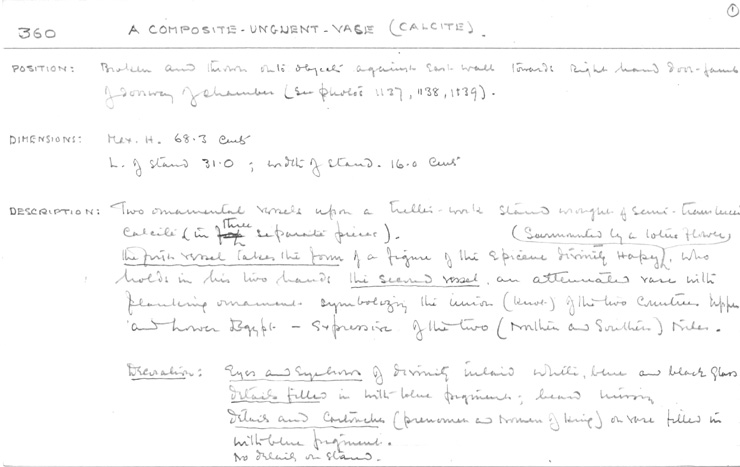 ①
360 A COMPOSITE-UNGUENT-VASE (CALCITE).
POSITION: Broken and thrown onto objects against East wall towards right hand door-jamb
of doorway of chamber (See photos 1137, 1138, 1139).
DIMENSIONS: Max. H. 68.3 cents
L. of stand 31.0 ; width of stand. 16.0 cents
DESCRIPTION: Two ornamental vessels upon a trellis-work stand wrought of semi-translucent
calcite (in three separate pieces). (Surmounted by a lotus flower)
the first vessel takes the form of a figure of the Epicene divinity Hapy, who
holds in his two hands the second vessel, an attenuated vase with
flanking ornament symbolizing the union (knot) of the two Countries Upper
and Lower Egypt – expressive of the two (Northern and Southern) Niles.
Decoration: Eyes and Eyebrows of divinity inlaid white, blue and black glass
details filled in with blue pigment; beard missing
details and Cartouches (prenomen and nomen of king) on vase filled in
with blue pigment.
No details on stand.